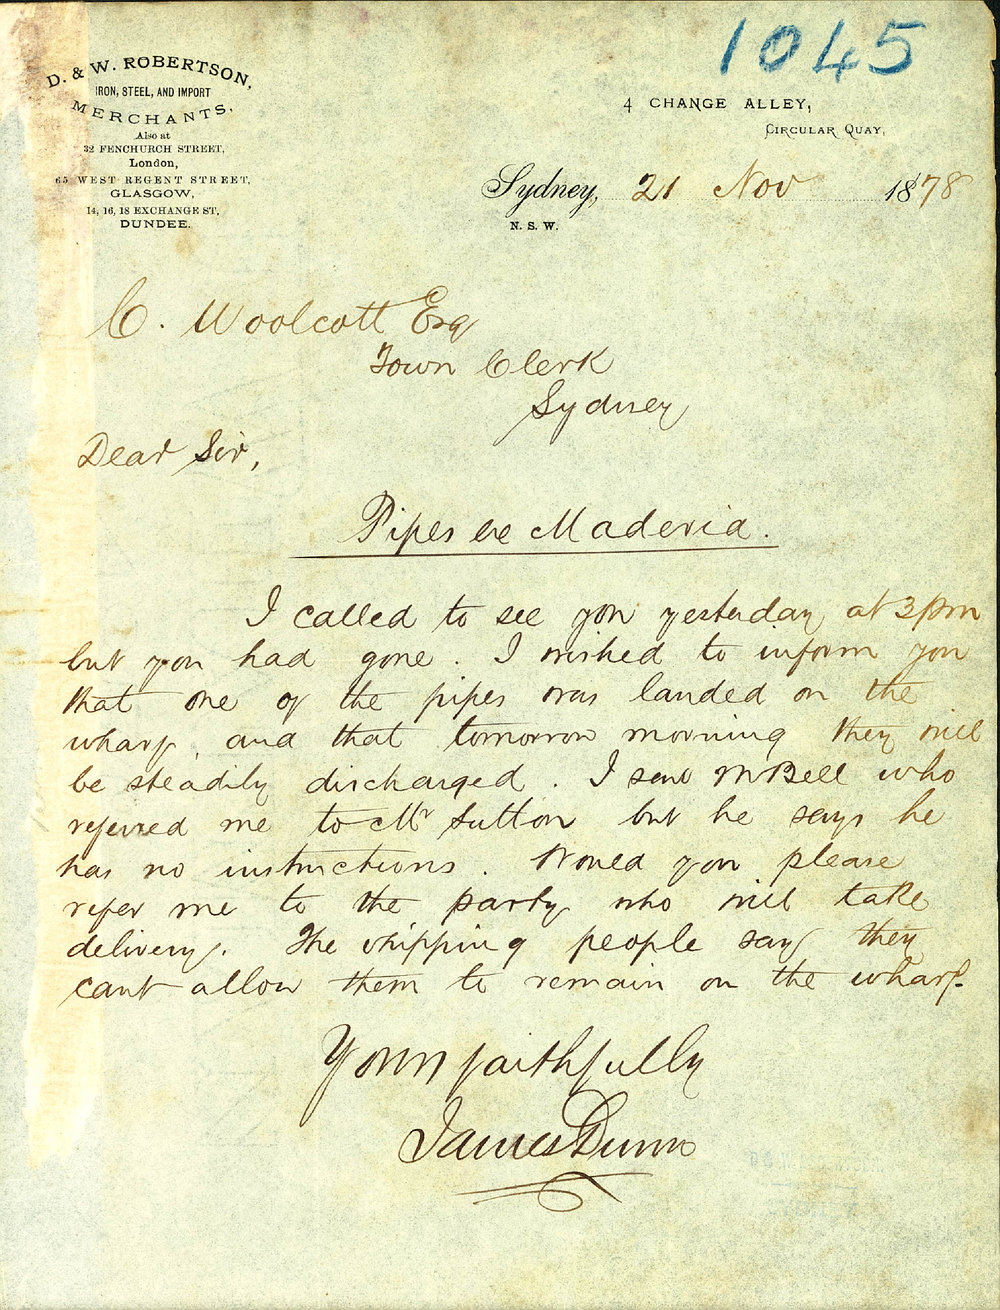 1045
D. & W. ROBERTSON,
IRON, STEEL, AND IMPORT
MERCHANTS.
Also at
32 FENCHURCH STREET,
London,
65 WEST REGENT STREET,
GLASGOW,
14, 16, 18 EXCHANGE ST,
DUNDEE.
4 CHANGE ALLEY,
CIRCULAR QUAY,
Sydney, 21 Nov 1878
N. S. W.
C. Woolcott Esq
Town Clerk
Sydney
Dear Sir,
Pipes ex Maderia.
I called to see you yesterday at 3pm
but you had gone. I wished to inform you
that one of the pipes was landed on the
wharf, and that tomorrow morning they will
be steadily discharged. I saw Mr Bell who
referred me to Mr Sutton but he says he
has no instructions. Would you please
refer me to the party who will take
delivery. The shipping people say they
cant allow them to remain on the wharf.
Yours faithfully
James Dunn